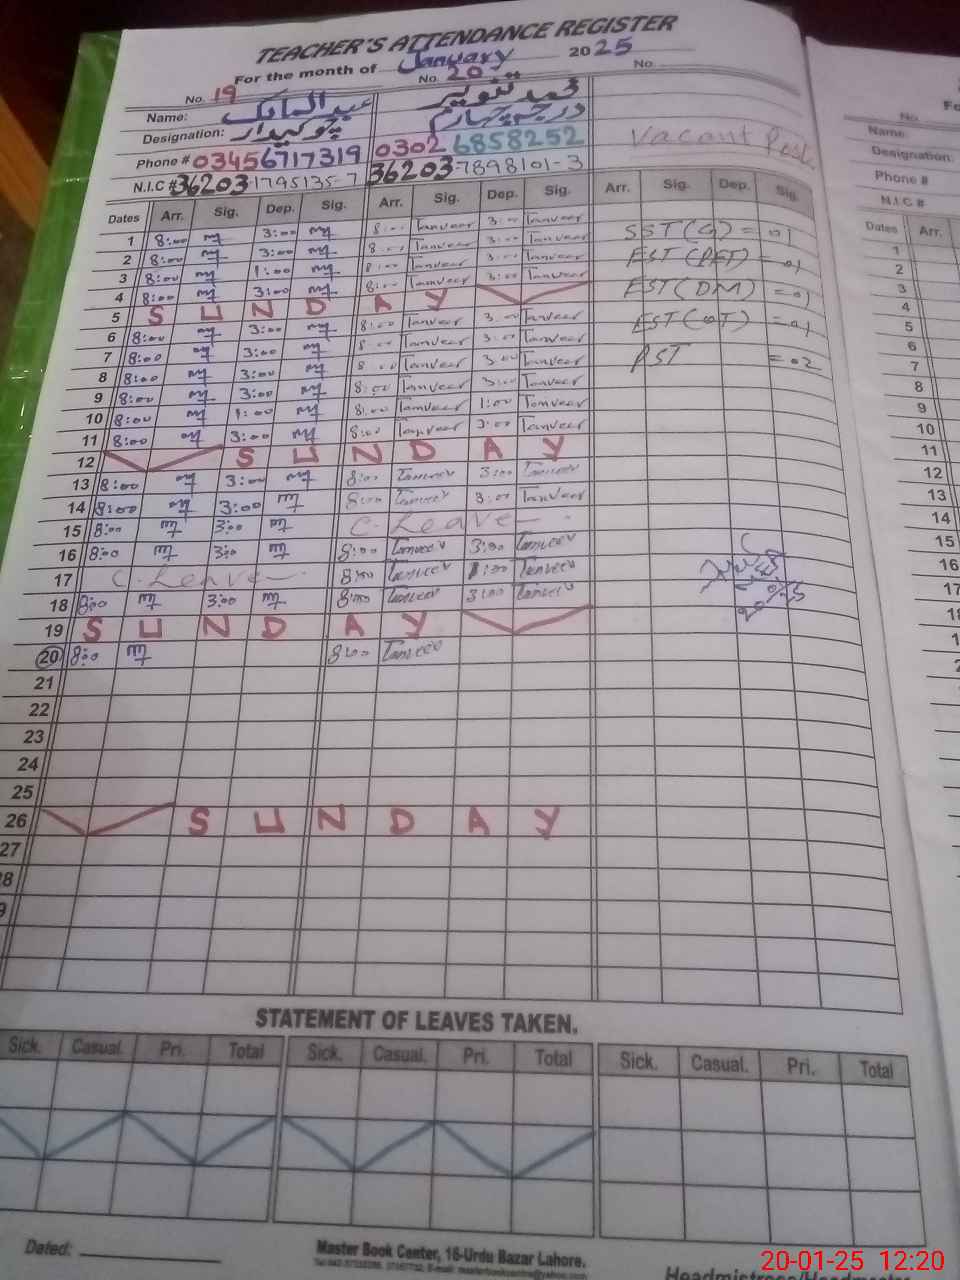 TEACHER'S ATTENDANCE REGISTER
For the month of January 2025
No. 19 No. 20 No.
Name: عبدالمالک محمد تنویر
Designation: چوکیدار درجہ چہارم
Phone # 03456717319 0302 6858252 Vacant Post
N.I.C # 36203-1795135-7 36203-7898101-3
Dates Arr. Sig. Dep. Sig. Arr. Sig. Dep. Sig. Arr. Sig. Dep. Sig.
1 8:00 3:00 8:00 Tanveer 3:00 Tanveer SST(G) = 01
2 8:00 3:00 8:00 Tanveer 3:00 Tanveer EST(PET) = 01
3 8:00 1:00 8:00 Tanveer Tanveer EST(DM) = 01
4 8:00 3:00 8:00 Tanveer 3:00 Tanveer EST(OT) = 01
5 SUNDAY PST = 02
6 8:00 3:00 8:00 Tanveer 3:00 Tanveer
7 8:00 3:00 8:00 Tanveer 3:00 Tanveer
8 8:00 3:00 8:00 Tanveer 3:00 Tanveer
9 8:00 3:00 8:00 Tanveer 3:00 Tanveer
10 8:00 1:00 8:00 Tanveer 1:00 Tanveer
11 8:00 3:00 8:00 Tanveer 3:00 Tanveer
12 SUNDAY
13 8:00 3:00 8:00 Tanveer 3:00 Tanveer
14 8:00 3:00 8:00 Tanveer 3:00 Tanveer
15 8:00 3:00 C. Leave
16 8:00 3:00 8:00 Tanveer 3:00 Tanveer
17 C. Leave 8:00 Tanveer 1:00 Tanveer
18 8:00 3:00 8:00 Tanveer 3:00 Tanveer
19 SUNDAY
20 8:00 8:00 Tanveer
21
22
23
24
25
26 SUNDAY
27
28
9
STATEMENT OF LEAVES TAKEN.
Sick. Casual. Pri. Total Sick. Casual. Pri. Total Sick. Casual. Pri. Total
Dated:
Master Book Center, 16-Urdu Bazar Lahore.
Name:
Designation:
Phone #
N.I.C #
Dates Arr.
1
2
3
4
5
6
7
8
9
10
11
12
13
14
15
16
17
20-01-25 12:20